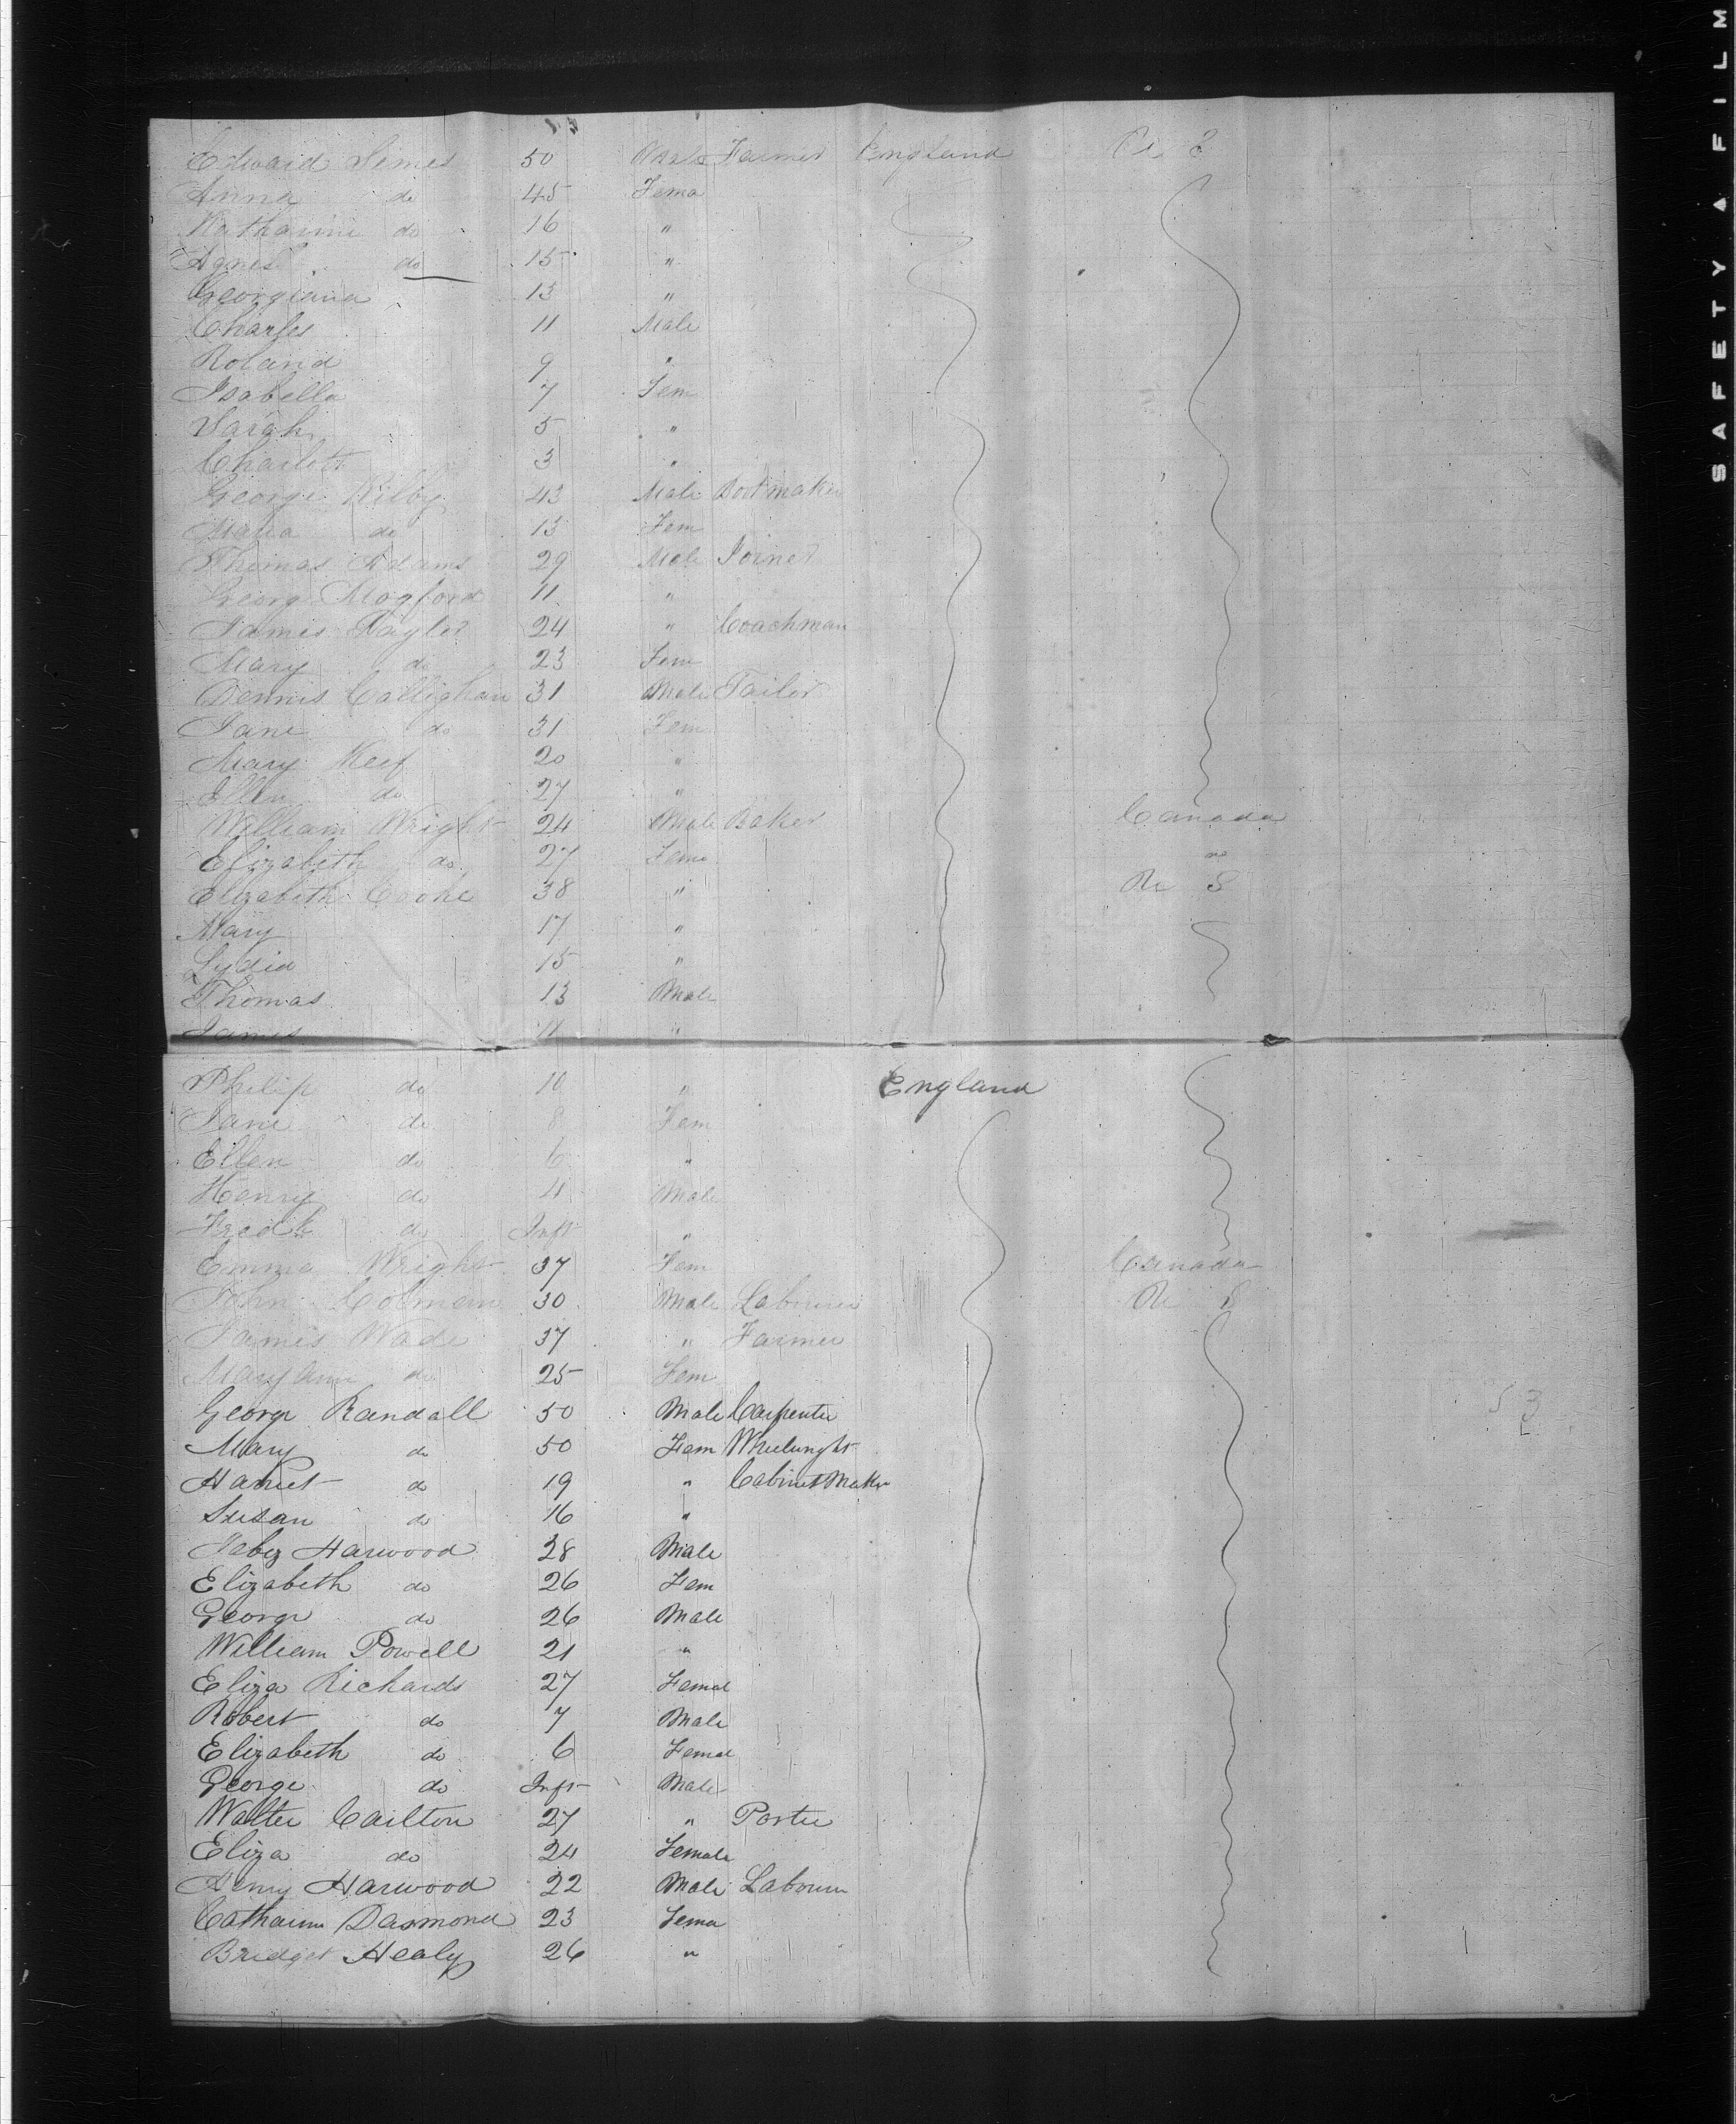 Edward Simes 50 Male Farmer England
Anna do 45 Fema
Katharine do 16 "
Agnes do 15 "
Georgiana 13 "
Charles 11 Male
Roland 9 "
Isabella 7 Fem
Sarah 5 "
Charlott 3 "
George Kilby 43 Male Bootmaker
Maria do 13 Fem
Thomas Adams 29 Male Joiner
Georg Mogford 11 "
James Taylor 24 " Coachman
Mary do 23 Fem
Dennis Callighan 31 Male Tailor
Jane do 31 Fem
Mary Keef 20 "
Ellen do 27 "
William Wright 24 Male Baker Canada
Elizabeth do 27 Fema do
Elizabeth Cooke 38 "
Mary 17 "
Lydia 15 "
Thomas 13 Male
James 11 "
Philip do 10 " England
Jane do 8 Fem
Ellen do 6 "
Henry do 4 Male
Fredk do Inft "
Emma Wright 37 Fem Canada
John Colman 30 Male Labourer
James Wade 37 " Farmer
Maryann do 25 Fem
George Randall 50 Male Carpenter
Mary do 50 Fem Wheelwright
Harriet do 19 " Cabinet Maker
Susan do 16 "
Jabez Harwood 28 Male
Elizabeth do 26 Fem
George do 26 Male
William Powell 21 "
Eliza Richards 27 Femal
Robert do 7 Male
Elizabeth do 6 Femal
George do Inft Male
Walter Carlton 27 " Porter
Eliza do 24 Female
Henry Harwood 22 Male Labourer
Catharine Dasmond 23 Fema
Bridget Healy 26 "
SAFETY A FILM